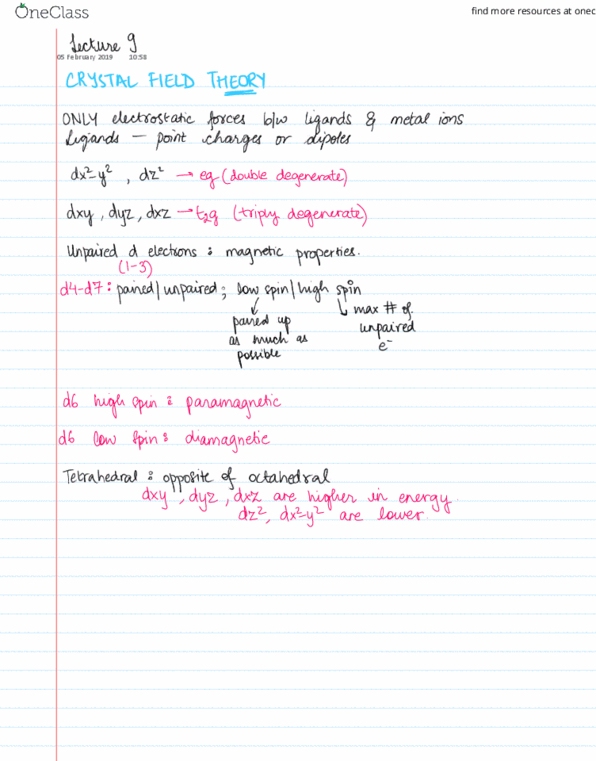 OneClass
find more resources at onec
Lecture 9
05 February 2019 10:58
CRYSTAL FIELD THEORY
ONLY electrostatic forces b/w ligands & metal ions
Ligands — point charges or dipoles
dx²-y² , dz² → eg (double degenerate)
dxy , dyz , dxz → t2g (triply degenerate)
Unpaired d electrons : magnetic properties.
(1-3)
d4-d7 : paired / unpaired ; low spin / high spin
↓ paired up as much as possible
↳ max # of unpaired e⁻
d6 high spin : paramagnetic
d6 low spin : diamagnetic
Tetrahedral : opposite of octahedral
dxy , dyz , dxz are higher in energy.
dz², dx²-y² are lower.